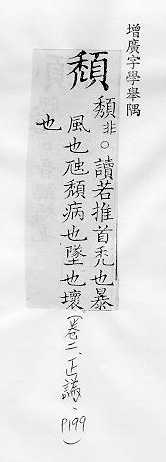 增廣字學舉隅
頹
頽非。讀若推首禿也暴
風也虺頽病也墜也壞
也
(卷二、正譌、P199)